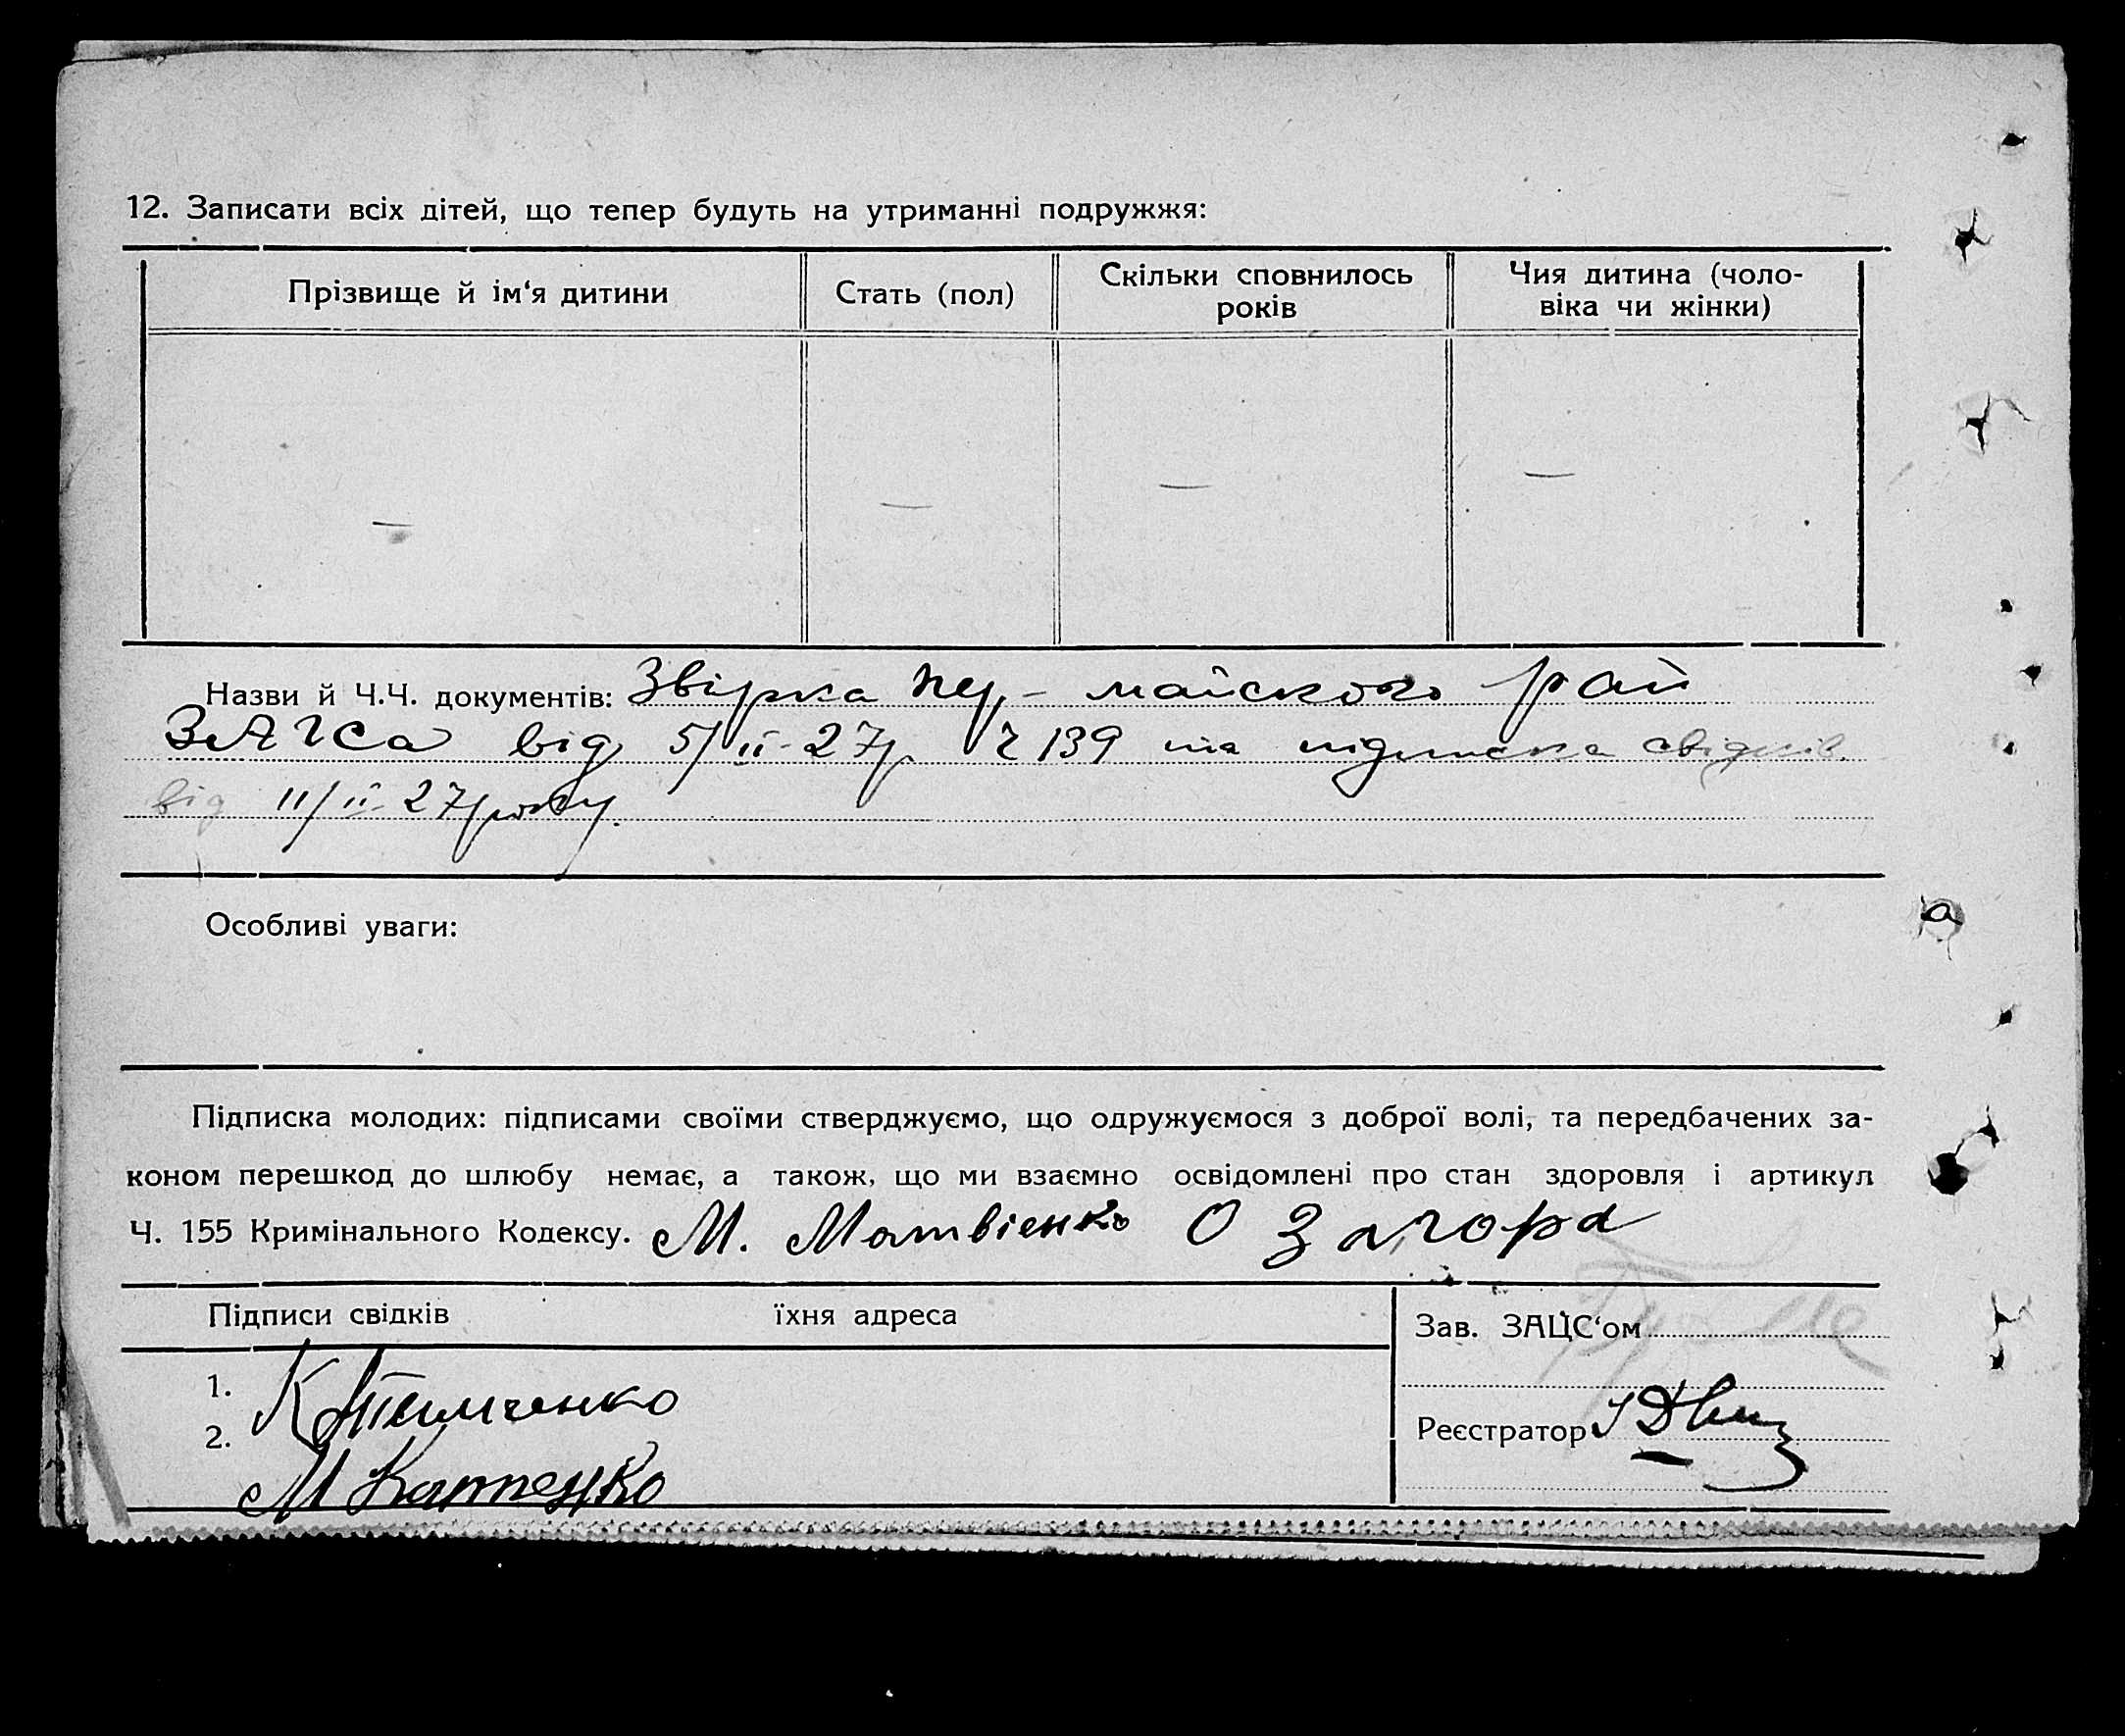 12. Записати всіх дітей, що тепер будуть на утриманні подружжя:
Прізвище й ім‘я дитини
Стать (пол)
Скільки сповнилось
років
Чия дитина (чоло-
віка чи жінки)
— — — —
Назви й Ч.Ч. документів: Звірка пер-майского рай
ЗАГСа від 5/II-27р. Ч 139 та підписка свідків
від 11/II-27 року.
Особливі уваги:
Підписка молодих: підписами своїми стверджуємо, що одружуємося з доброї волі, та передбачених за-
коном перешкод до шлюбу немає, а також, що ми взаємно освідомлені про стан здоровля і артикул
Ч. 155 Кримінального Кодексу. М. Матвієнко О Загора
Підписи свідків їхня адреса
Зав. ЗАЦС‘ом
1. К
2. М
Реєстратор